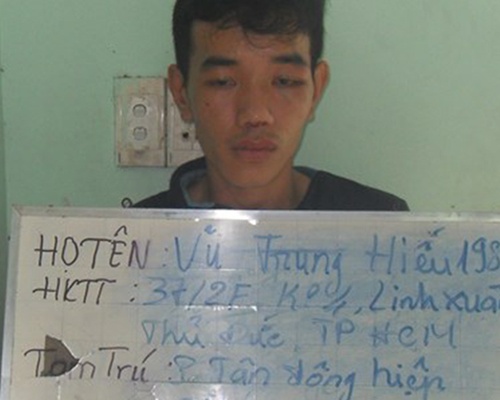 HỌ TÊN : Vũ Trung Hiếu 198
HKTT : 37/2F Kp4, Linh xuâ
Thủ Đức TP HCM
Tạm Trú : P Tân đông hiệp